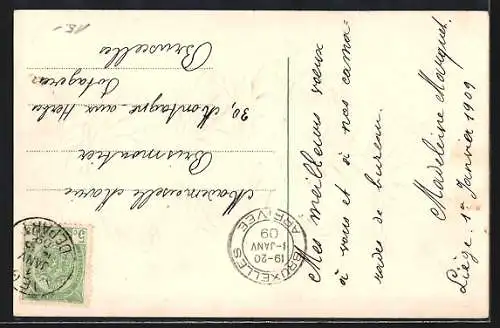 Mademoiselle Marie
Dusmontier
30, Montagne aux Herbes
Potagères
Bruxelles
Mes meilleurs vœux
à vous et à nos cama-
rades de bureau.
Madeleine
Liège 1er Janvier 1909
BRUXELLES
19-20
1-JANV
09
ARRIVÉE
DEPART
JANV
15.-